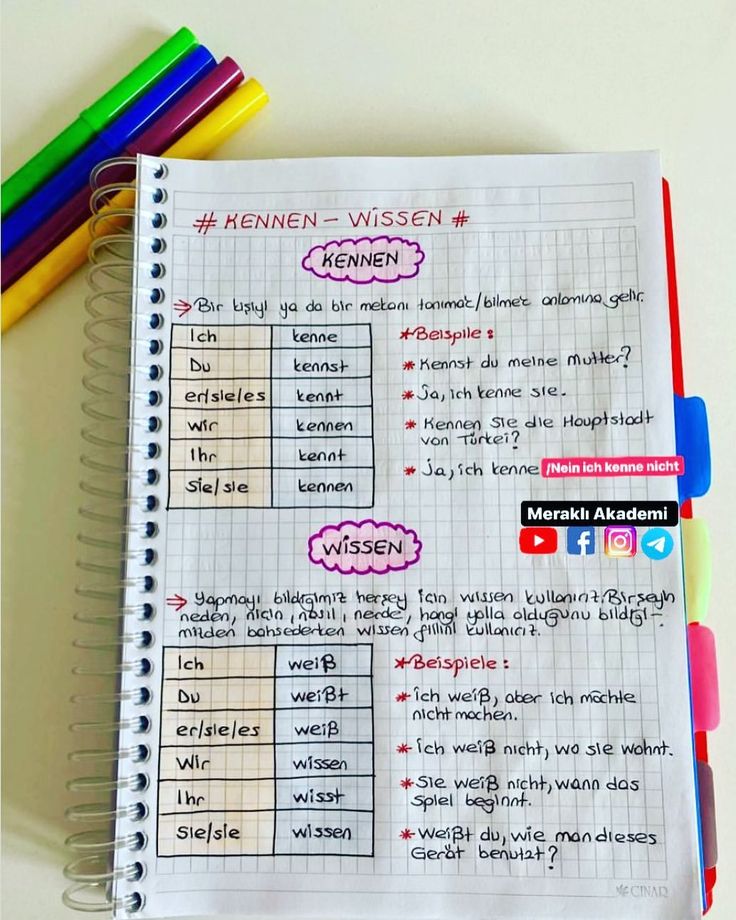 # KENNEN – WiSSEN #
KENNEN
→ Bir kişiyi ya da bir mekanı tanımak/bilmek anlamına gelir.
Ich kenne
Du kennst
er/sie/es kennt
wir kennen
Ihr kennt
Sie/sie kennen
*Beispile :
* Kennst du meine Mutter?
* Ja, ich kenne sie.
* Kennen Sie die Hauptstadt
von Türkei?
* Ja, ich kenne /Nein ich kenne nicht
Meraklı Akademi
WiSSEN
→ Yapmayı bildiğimiz herşey için wissen kullanırız. Birşeyin
neden, niçin, nasıl, nerde, hangi yolla olduğunu bildiği-
mizden bahsederken wissen fiilini kullanırız.
Ich weiß
Du weißt
er/sie/es weiß
Wir wissen
Ihr wisst
Sie/sie wissen
*Beispiele :
* ich weiß, aber ich möchte
nicht machen.
* ich weiß nicht, wo sie wohnt.
* Sie weiß nicht, wann das
Spiel beginnt.
* Weißt du, wie man dieses
Gerät benutzt?
ÇINAR